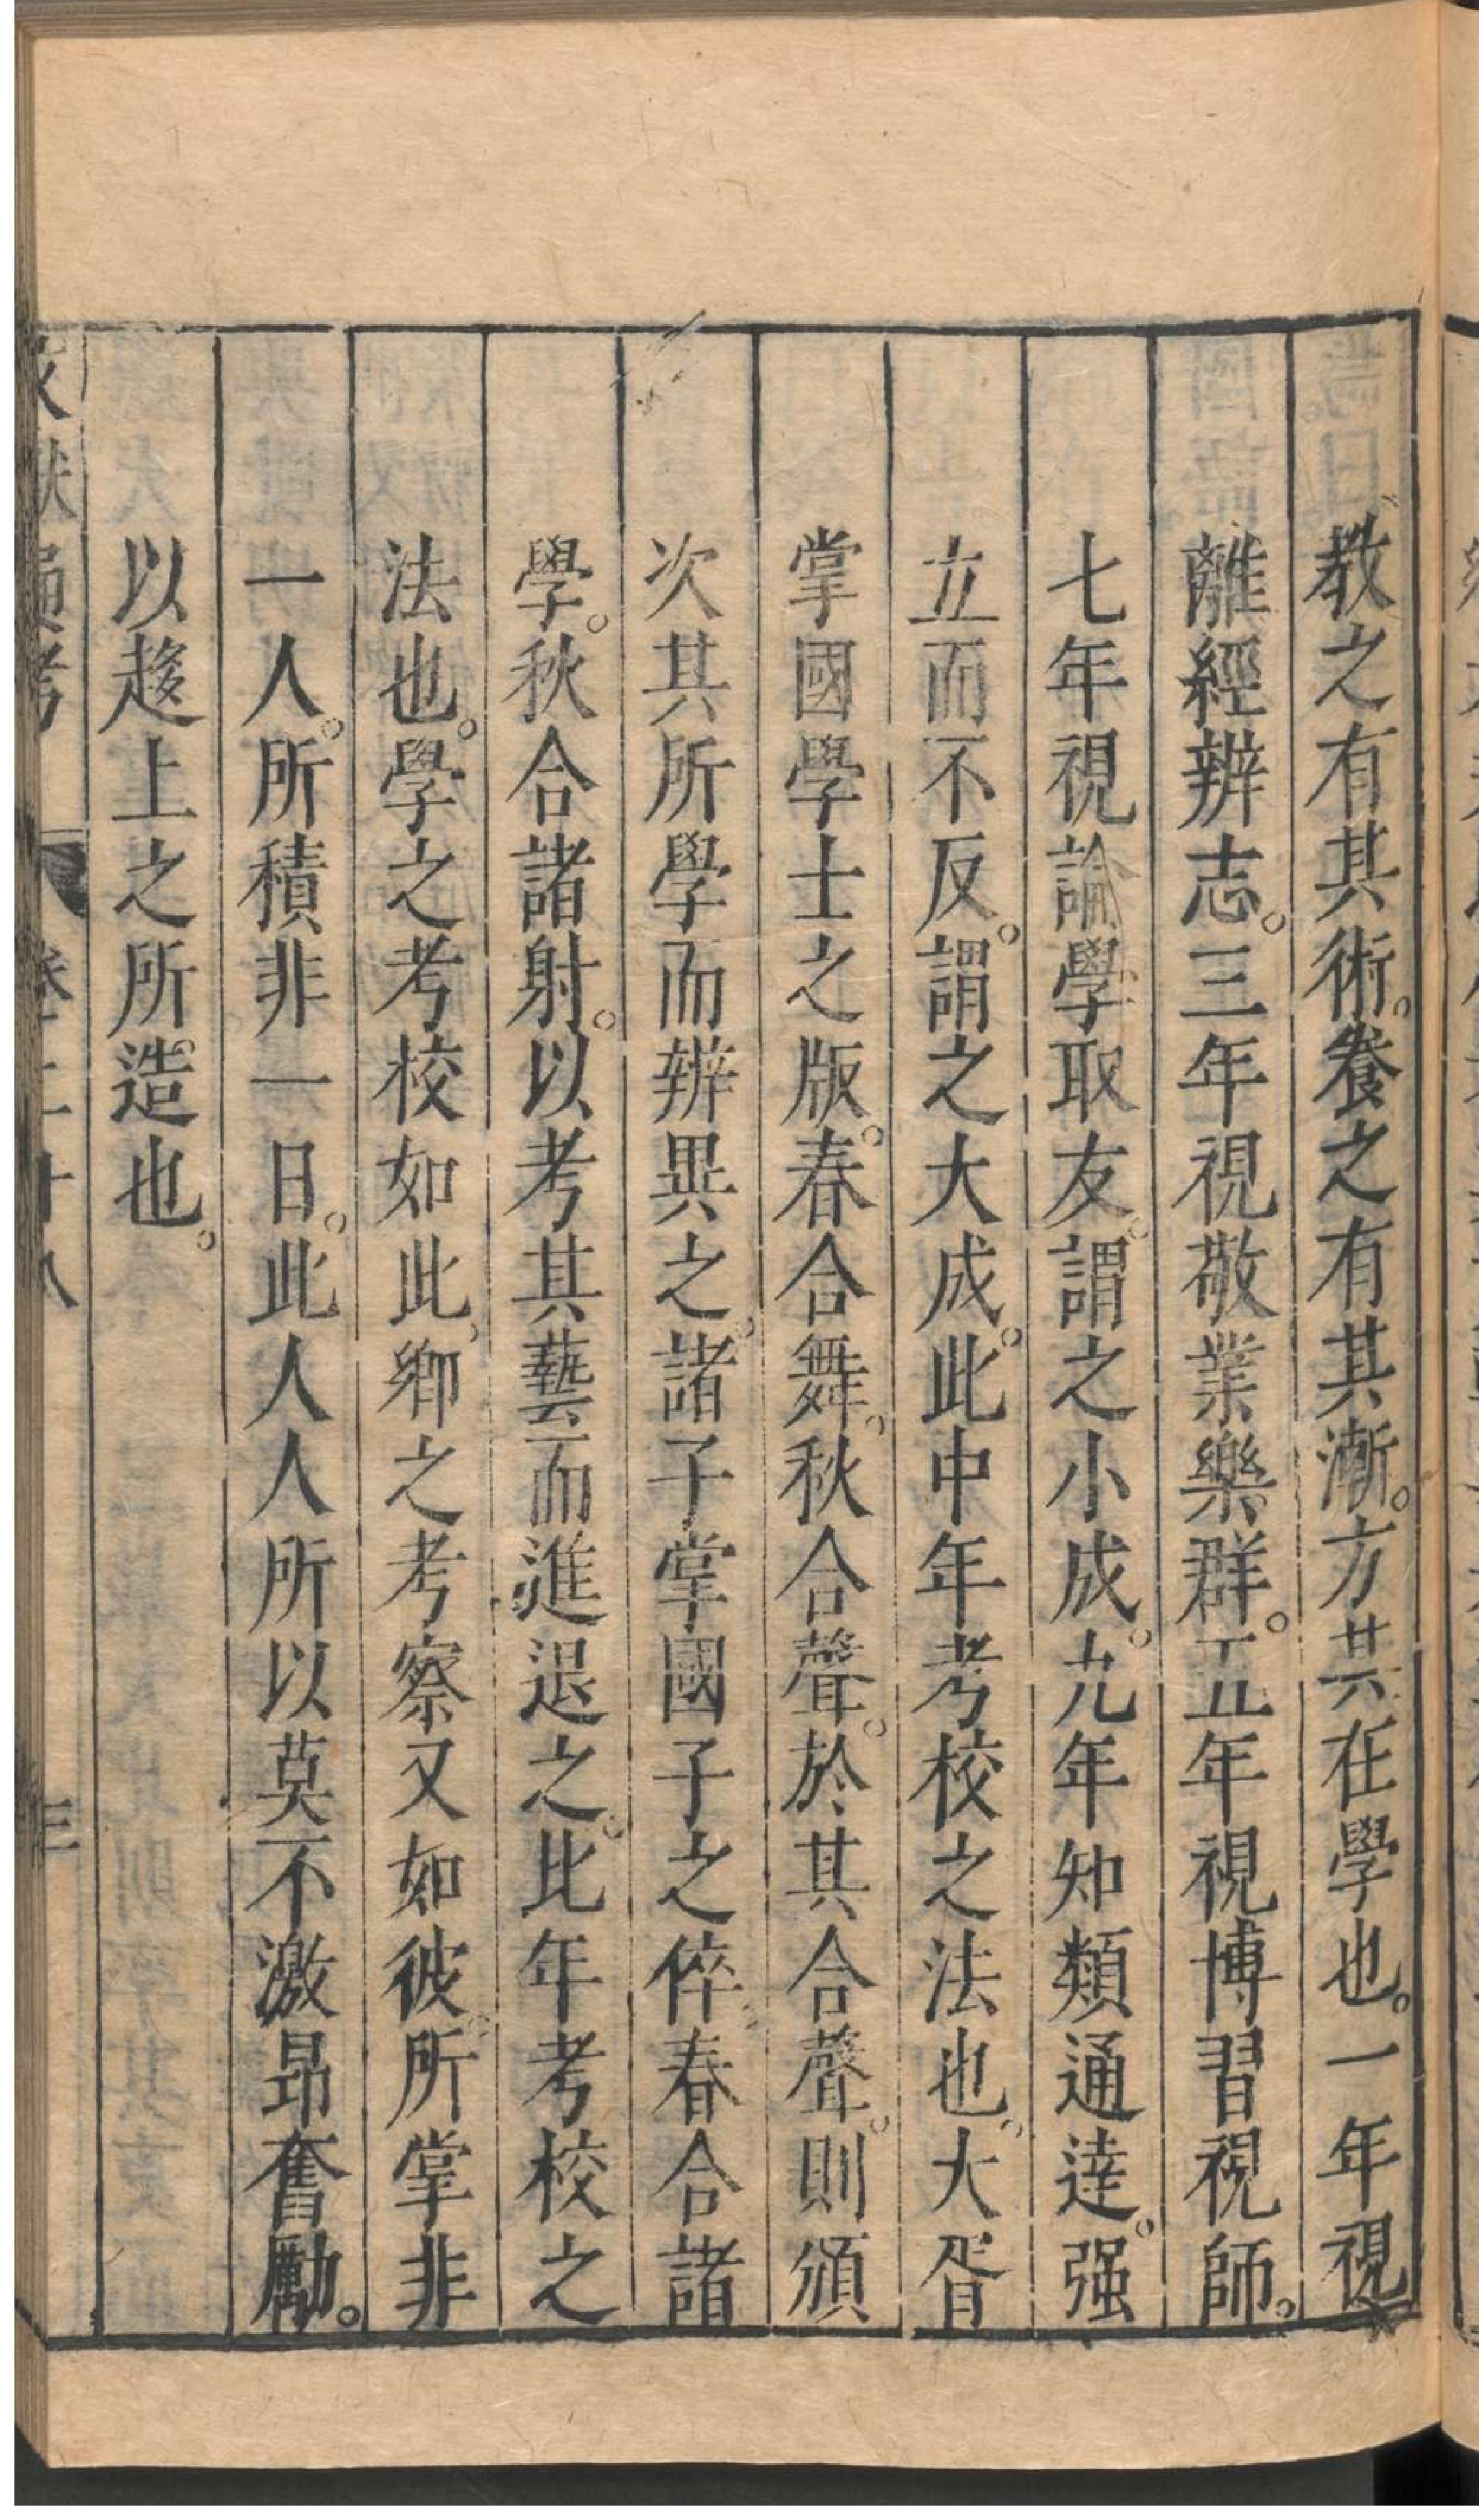 教之有其術。養之有其漸。方其在學也。一年視
離經辨志。三年視敬業樂群。五年視博習視師。
七年視論學取友。謂之小成。九年知類通達。强
立而不反。謂之大成。此中年考校之法也。大胥
掌國學士之版。春合舞。秋合聲。於其合聲。則頒
次其所學而辨異之。諸子掌國子之倅。春合諸
學。秋合諸射。以考其藝而進退之。比年考校之
法也。學之考校如此。鄉之考察又如彼。所掌非
一人。所積非一日。此人人所以莫不激昂奮勵。
以趨上之所造也。